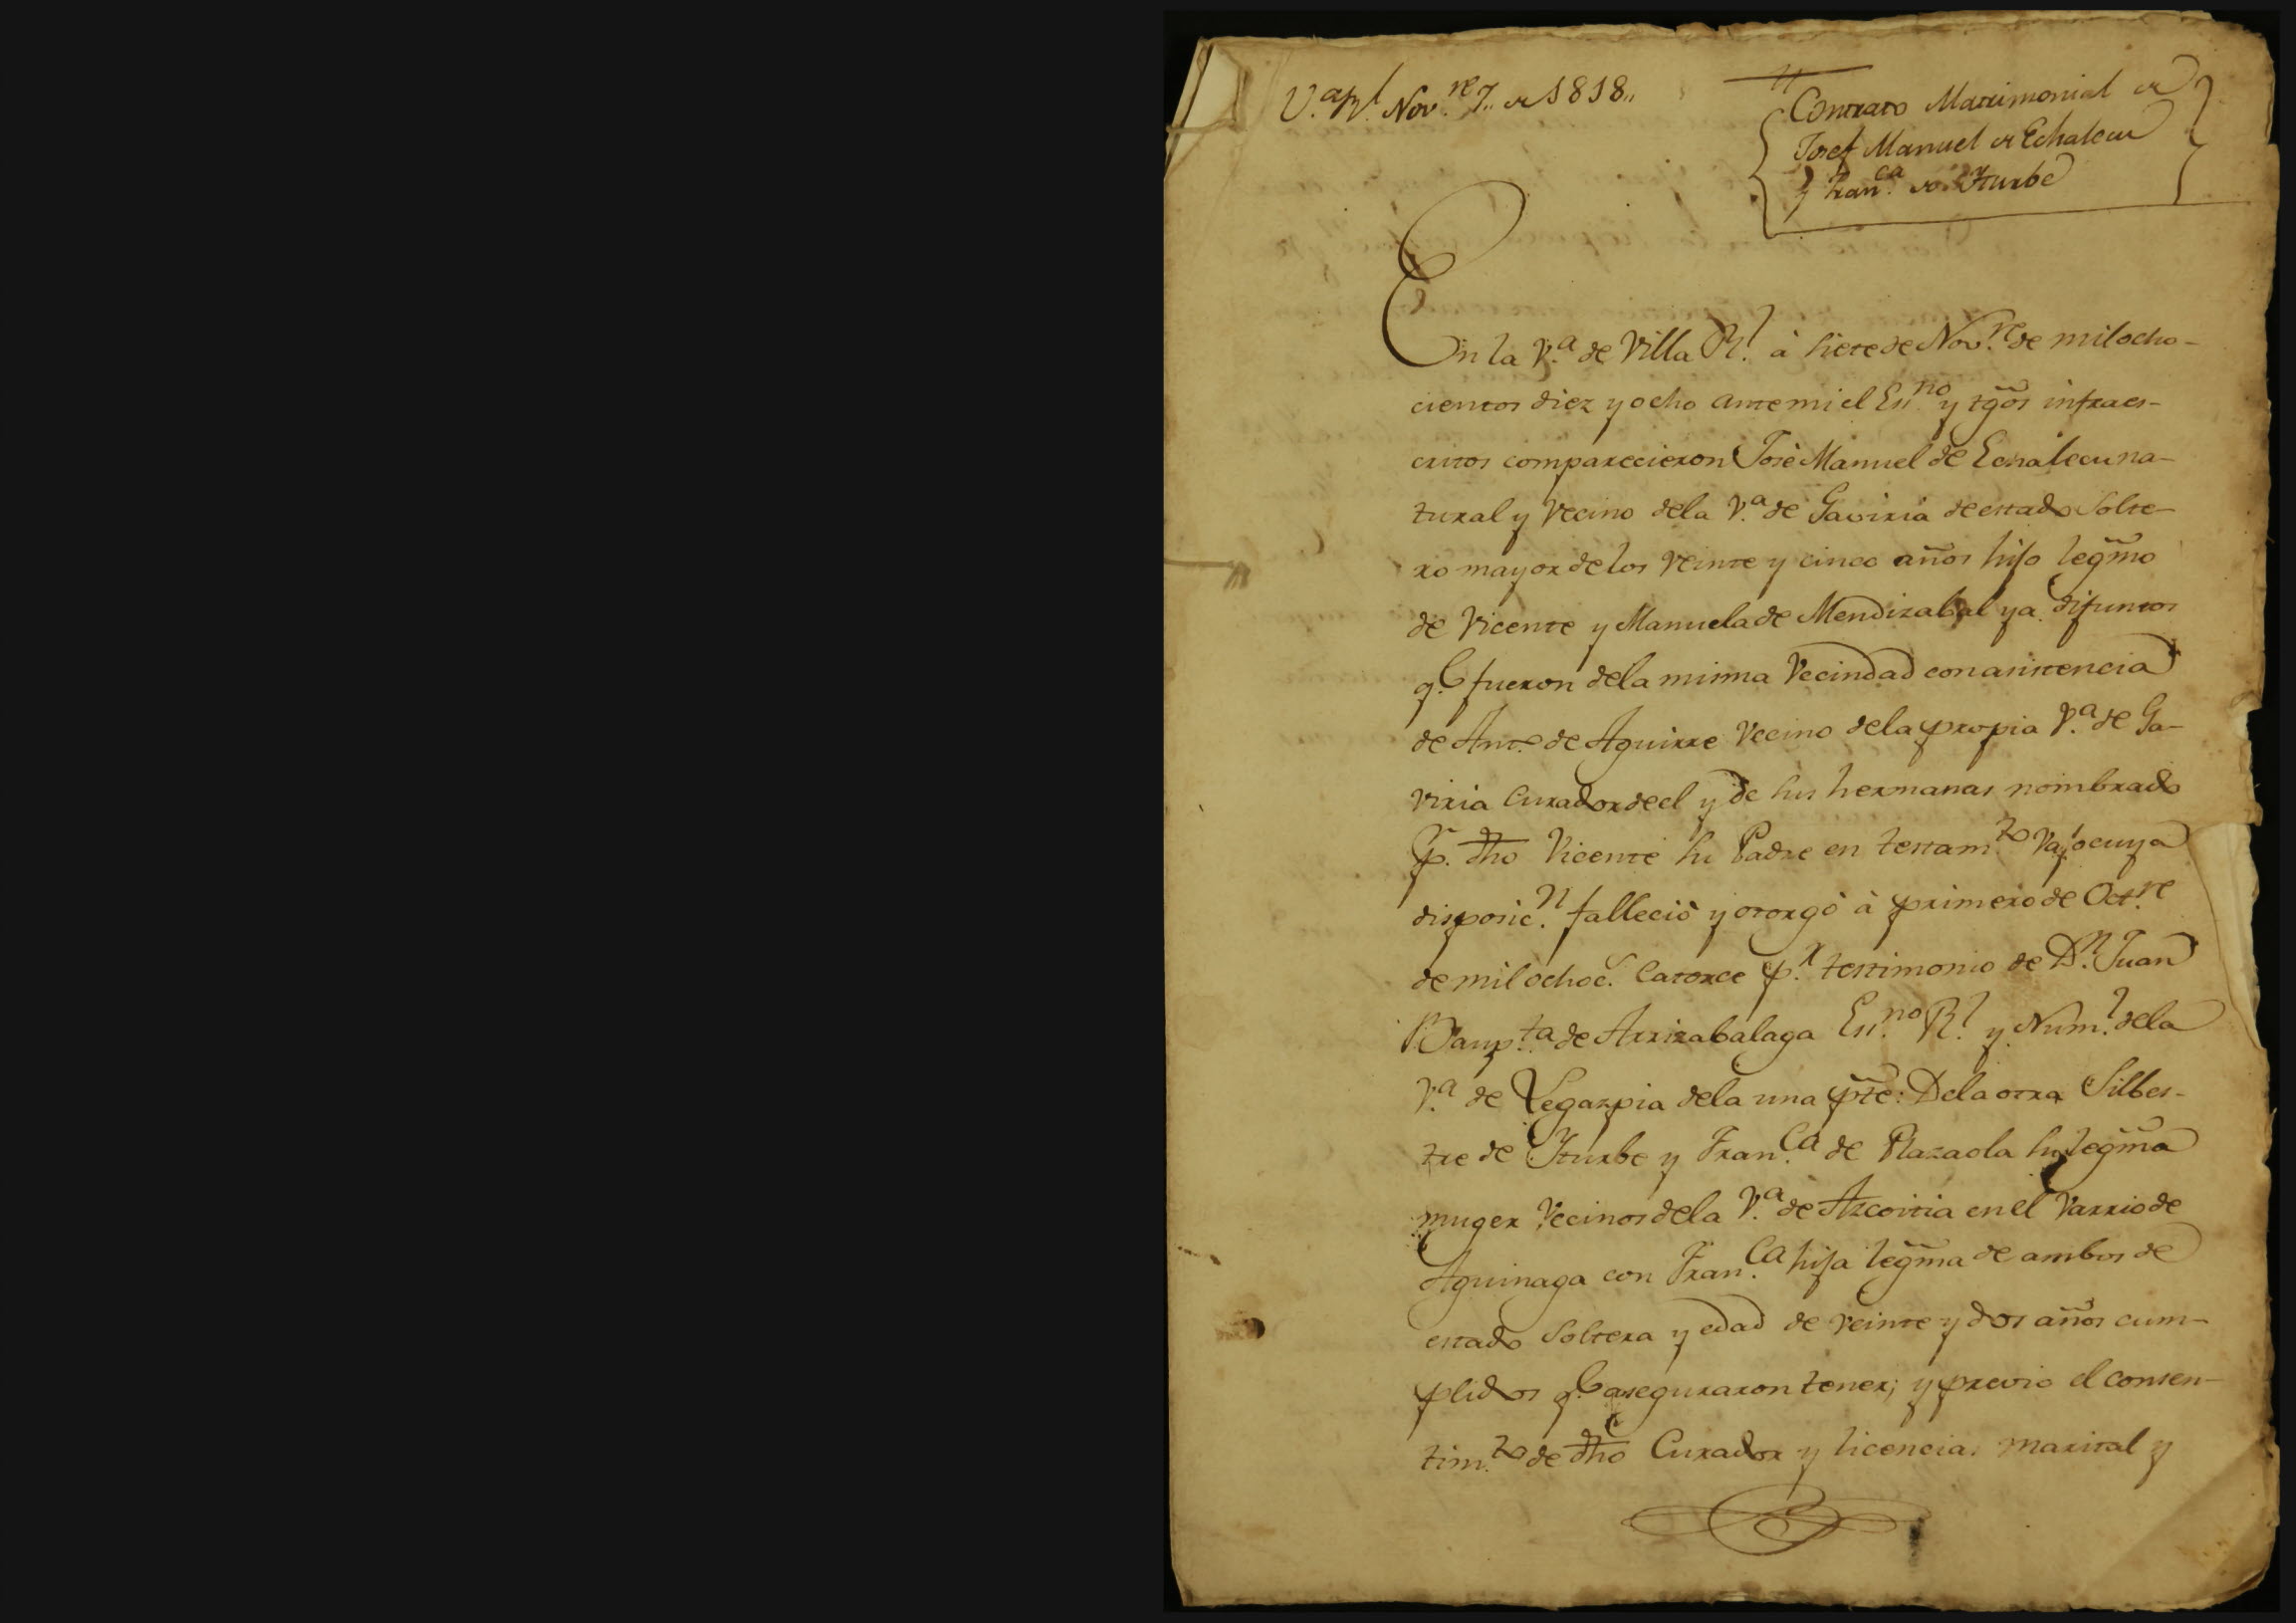 V.ª R.l Nov.re 7,, de 1818,,
Contrato Matrimonial de
Josef Manuel de Echalecu
y Fran.ca de Yturbe
En la V.a de Villa R.l à siete de Nov.re de mil ocho-
cientos diez y ocho ante mi el Es.no y tgôs infraes-
critos comparecieron José Manuel de Echalecu na-
tural y Vecino dela V.a de Gaviria de estado Solte-
ro mayor de los veinte y cinco años hijo legmo
de Vicente y Manuela de Mendizabal ya difuntos
q.e fueron dela misma Vecindad con asistencia
de Ant.o de Aguirre Vecino dela propia V.a de Ga-
viria Curador deel y de sus hermanas nombrado
p.r dho Vicente su Padre en testam.to vajo cuya
disposic.n falleció y otorgó à primero de Oct.re
de mil ochoc.s Catorce p.r testimonio de D.n Juan
Baup.ta de Arrizabalaga Es.no R.l y Num.l dela
V.a de Legazpia dela una pte: Dela otra Silbes-
tre de Yturbe y Fran.ca de Plazaola su legma
muger Vecinos dela V.a de Azcoitia en el Varrio de
Aguinaga con Fran.ca hija legma de ambos de
estado Soltera y edad de veinte y dos años cum-
plidos q.e aseguraron tener; y previo el consen-
tim.to de dho Curador y licencias marital y